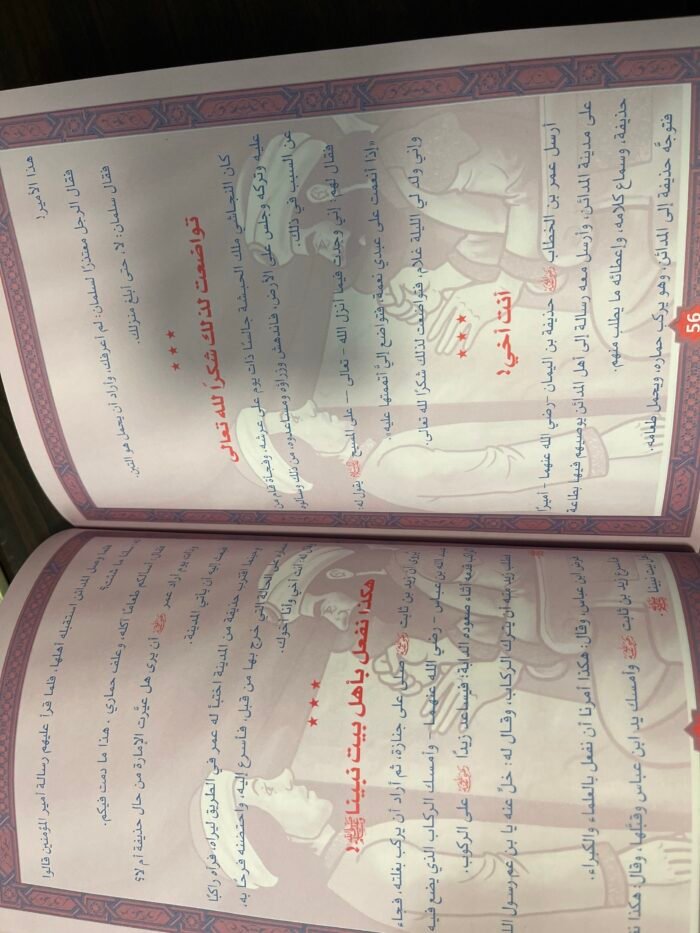 هذا الأمير!
فقال الرجل معتذرًا لسلمان: لم أعرفك، وأراد أن يحمل هو التبن.
فقال سلمان: لا، حتى أبلغ منزلك.
تواضعت لذلك شكرًا لله تعالى
كان النجاشي ملك الحبشة جالسًا ذات يوم على عرشه، وفجأة قام من
عليه وتركه وجلس على الأرض، فاندهش وزراؤه ومساعدوه، من ذلك وسألوه
عن السبب في ذلك.
فقال لهم: إني وجدت فيما أنزل الله - تعالى - على المسيح يقول له:
«إذا أنعمت على عبدي نعمة، فتواضع إليَّ أتممتها عليه».
وإني ولد لي الليلة غلام، فتواضعت لذلك شكرًا لله تعالى.
أنت أخي!
أرسل عمر بن الخطاب حذيفة بن اليمان - رضي الله عنهما - أميرًا
على مدينة المدائن، وأرسل معه رسالة إلى أهل المدائن يوصيهم فيها بطاعة
حذيفة، وسماع كلامه، وإعطائه ما يطلب منهم.
فتوجَّه حذيفة إلى المدائن، وهو يركب حماره، ويحمل طعامه.
56
فلما وصل المدائن استقبله أهلها، فلما قرأ عليهم رسالة أمير المؤمنين قالوا
سلنا ما شئت؟
فقال: أسألكم طعامًا آكله، وعلف حماري. هذا ما دمت فيكم.
وذات يوم أراد عمر أن يرى هل غيَّرت الإمارة من حال حذيفة أم لا؟
فبعث إليه أن يأتي المدينة.
وعندما اقترب حذيفة من المدينة اختبأ له عمر في الطريق ليراه، فرآه راكبًا
حماره على الحالة التي خرج بها من قبل، فأسرع إليه، واحتضنه فرحًا به،
وقال له: أنت أخي وأنا أخوك.
هكذا نفعل بأهل بيت نبينا ﷺ!
يروى أن زيد بن ثابت صلى على جنازة، ثم أراد أن يركب بغلته، فجاء
عبد الله بن عباس - رضي الله عنهما - وأمسك الركاب الذي يضع فيه
الراكب قدمه أثناء صعوده الدابة؛ فيساعد زيدًا على الركوب.
فطلب زيد منه أن يترك الركاب، وقال له: خلِّ عنه يا بن عم رسول
فرفض ابن عباس، وقال: هكذا أمرنا أن نفعل بالعلماء والكبراء.
فأسرع زيد بن ثابت وأمسك يد ابن عباس وقبَّلها، وقال: هكذا
بيت نبينا ﷺ.